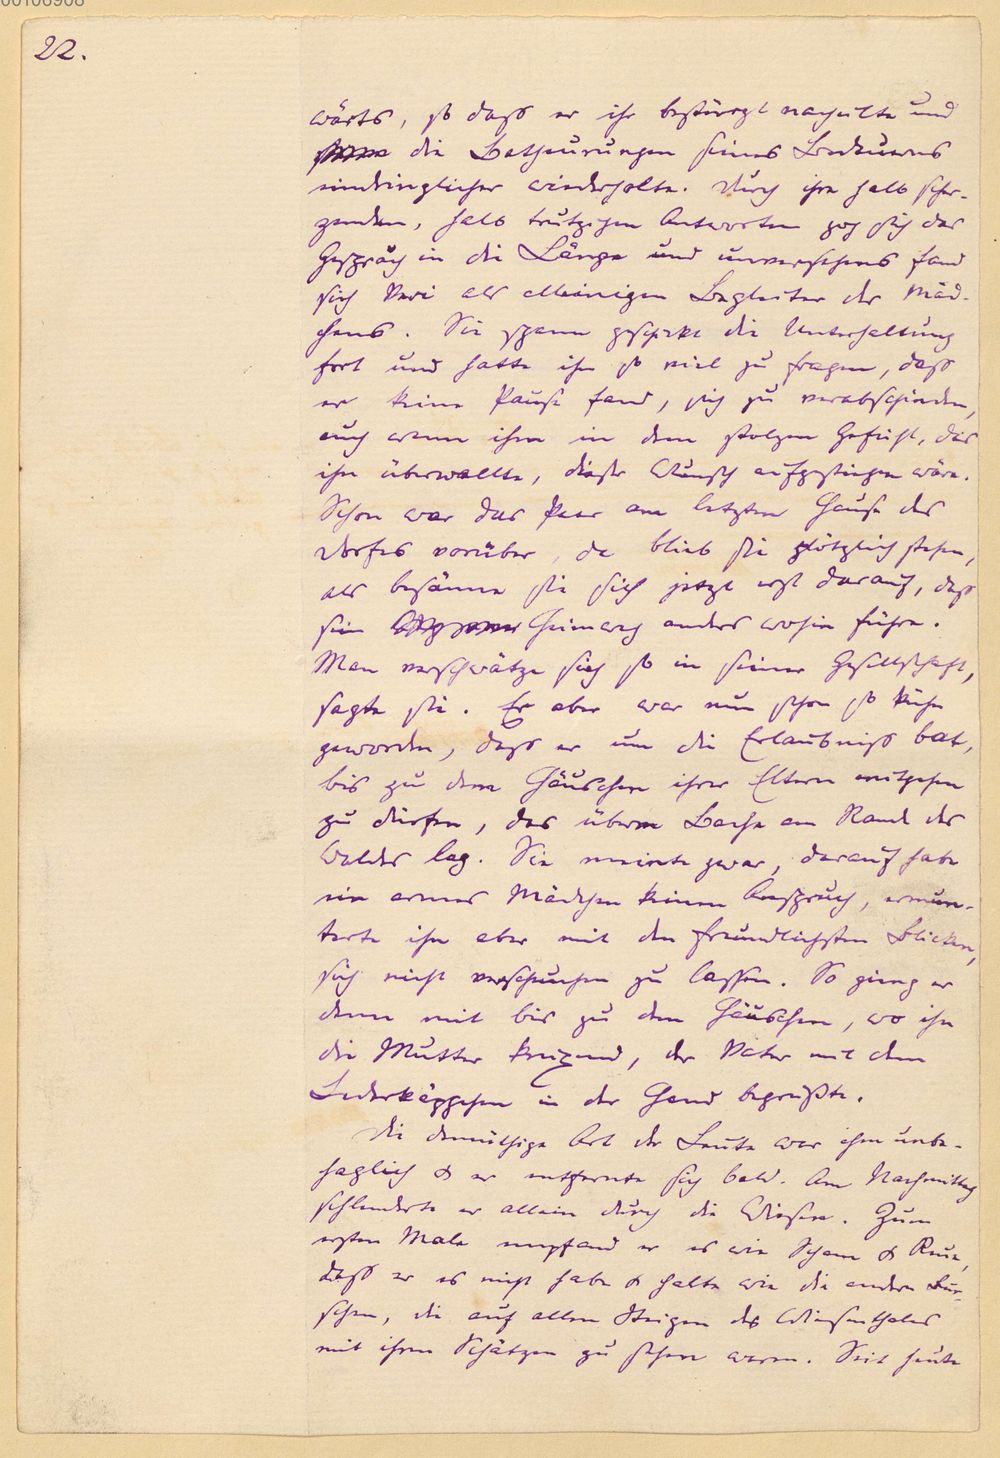 00106908
22.
wärts, so daß er ihr bestürzt nacheilte und
die Betheurungen seines Bedauerns
eindringlicher wiederholte. Durch ihre halb scher-
zenden, halb trutzigen Antworten zog sich das
Gespräch in die Länge und unversehens fand
sich Veri als alleinigen Begleiter des Mäd-
chens. Sie spann geschickt die Unterhaltung
fort und hatte ihn so viel zu fragen, daß
er keine Pause fand, sich zu verabschieden,
auch wenn ihm in dem stolzen Gefühl, das
ihn überwallte, dieser Wunsch aufgestiegen wäre.
Schon war das Paar am letzten Hause des
Dorfes vorüber, da blieb sie plötzlich stehen,
als besänne sie sich jetzt erst darauf, daß
sein Heimweg anders wohin führe.
Man verschwätze sich so in seiner Gesellschaft,
sagte sie. Er aber war nun schon so kühn
geworden, daß er um die Erlaubniß bat,
bis zu dem Häuschen ihrer Eltern mitgehen
zu dürfen, das überm Bache am Rand des
Waldes lag. Sie meinte zwar, darauf habe
ein armes Mädchen keinen Anspruch, ermun-
terte ihn aber mit den freundlichsten Blicken,
sich nicht verscheuchen zu lassen. So gieng er
denn mit bis zu dem Häuschen, wo ihn
die Mutter knixend, der Vater mit dem
Lederkäppchen in der Hand begrüßte.
Die demüthige Art der Leute war ihm unbe-
haglich & er entfernte sich bald. Am Nachmittag
schlenderte er allein durch die Wiesen. Zum
ersten Male empfand er es wie Scham & Reue,
daß er es nicht habe & halte wie die andern Bur-
schen, die auf allen Steigen des Wiesenthales
mit ihren Schätzen zu sehen waren. Seit heute